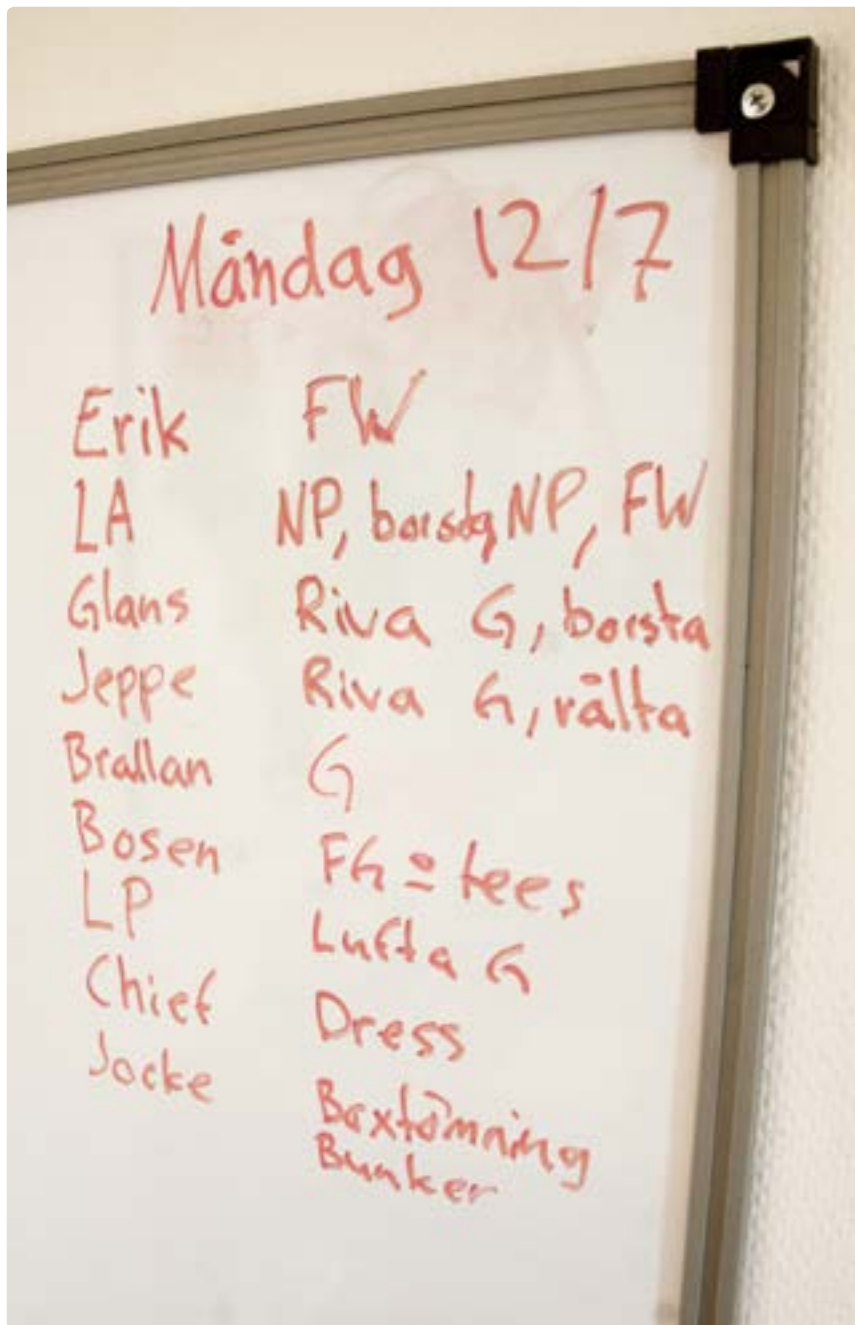 Måndag 12/7
Erik FW
LA NP, borsta NP, FW
Glans Riva G, borsta
Jeppe Riva G, välta
Brallan G
Bosen FG o tees
LP Lufta G
Chief Dress
Jocke Boxtömning
Bunker